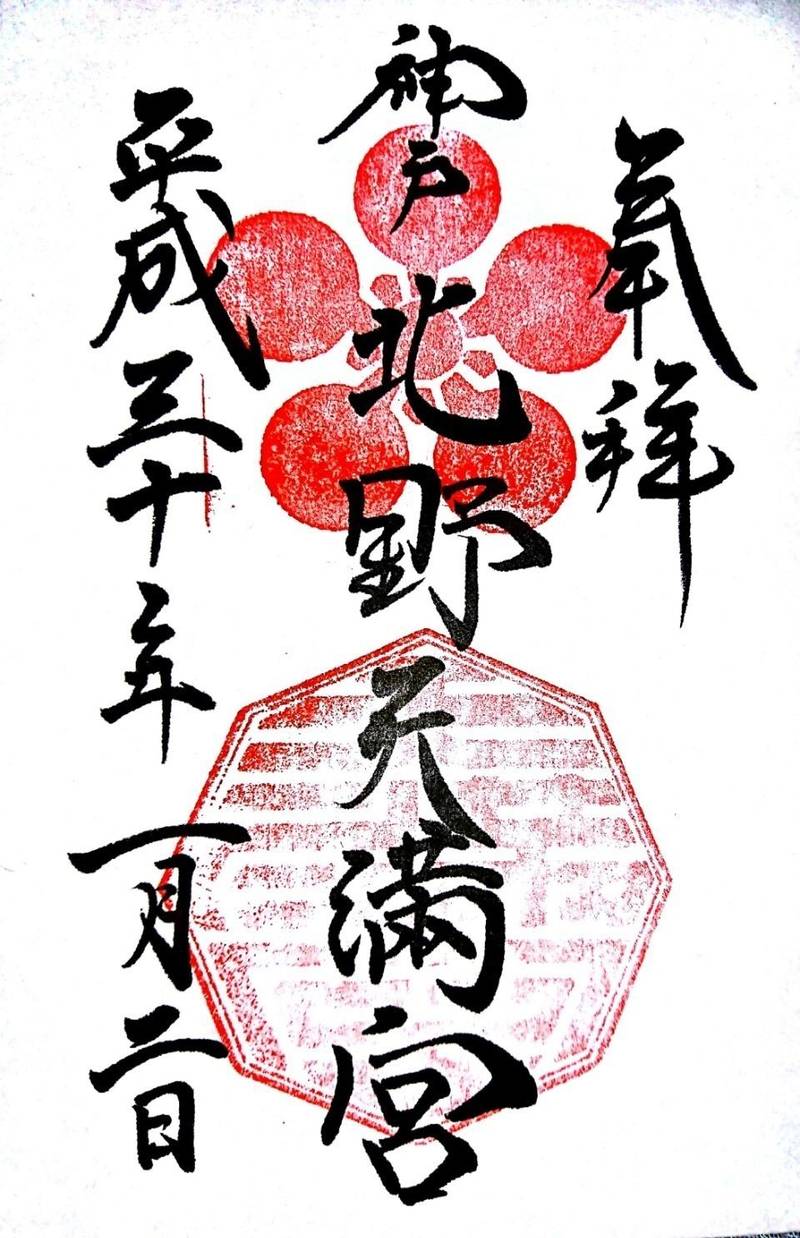 奉拝
神戸
北野天満宮
平成三十年一月二日